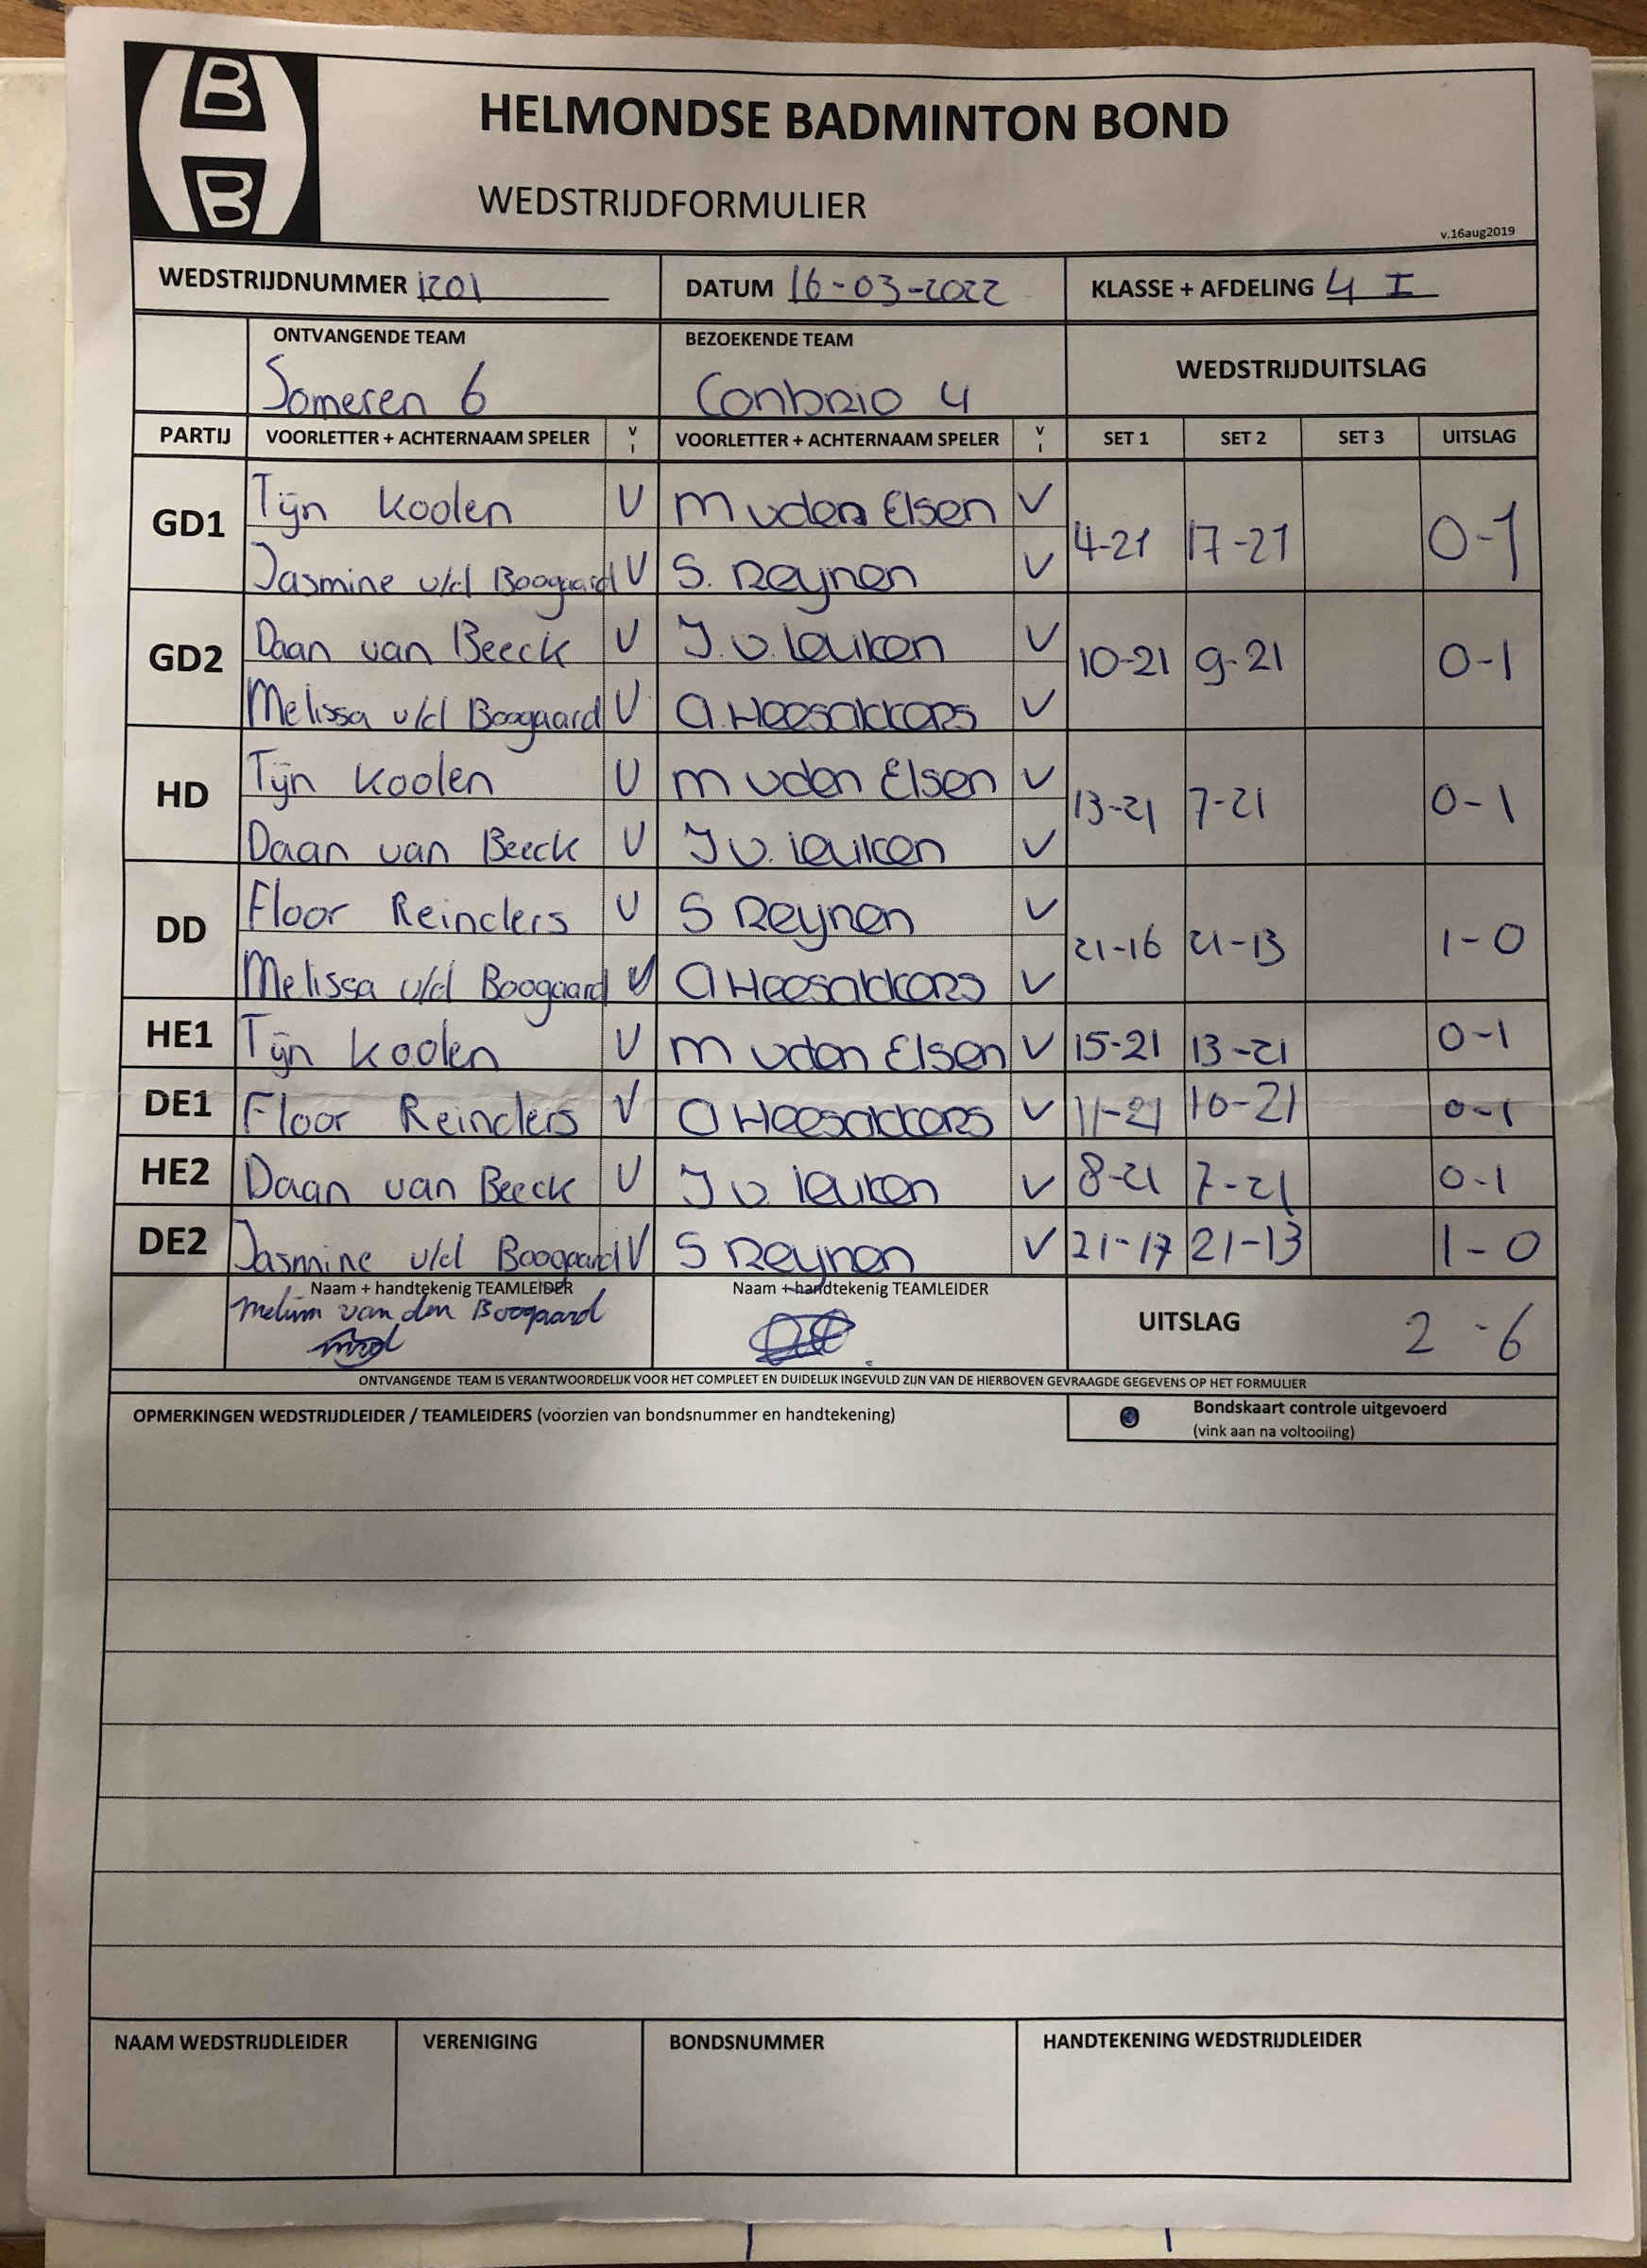 B
B
HELMONDSE BADMINTON BOND
WEDSTRIJDFORMULIER
v.16aug2019
WEDSTRIJDNUMMER 1201 DATUM 16-03-2022 KLASSE + AFDELING 4 I
ONTVANGENDE TEAM BEZOEKENDE TEAM WEDSTRIJDUITSLAG
Someren 6 Conbrio 4
PARTIJ VOORLETTER + ACHTERNAAM SPELER V I VOORLETTER + ACHTERNAAM SPELER V I SET 1 SET 2 SET 3 UITSLAG
GD1 Tijn Koolen V M vden Elsen V 4-21 17-21 0-1
Jasmine v/d Boogaard V S. Reynen V
GD2 Daan van Beeck V J. v. Leuken V 10-21 9-21 0-1
Melissa v/d Boogaard V A. Heesakkers V
HD Tijn Koolen V M vden Elsen V 13-21 7-21 0-1
Daan van Beeck V J v. Leuken V
DD Floor Reinders V S Reynen V 21-16 21-13 1-0
Melissa v/d Boogaard V A Heesakkers V
HE1 Tijn Koolen V M vden Elsen V 15-21 13-21 0-1
DE1 Floor Reinders V A Heesakkers V 11-21 10-21 0-1
HE2 Daan van Beeck V J v. Leuken V 8-21 7-21 0-1
DE2 Jasmine v/d Boogaard V S Reynen V 21-17 21-13 1-0
Naam + handtekenig TEAMLEIDER Naam + handtekenig TEAMLEIDER
van den Boogaard
UITSLAG 2-6
ONTVANGENDE TEAM IS VERANTWOORDELIJK VOOR HET COMPLEET EN DUIDELIJK INGEVULD ZIJN VAN DE HIERBOVEN GEVRAAGDE GEGEVENS OP HET FORMULIER
OPMERKINGEN WEDSTRIJDLEIDER / TEAMLEIDERS (voorzien van bondsnummer en handtekening)
Bondskaart controle uitgevoerd
(vink aan na voltooiing)
NAAM WEDSTRIJDLEIDER VERENIGING BONDSNUMMER HANDTEKENING WEDSTRIJDLEIDER